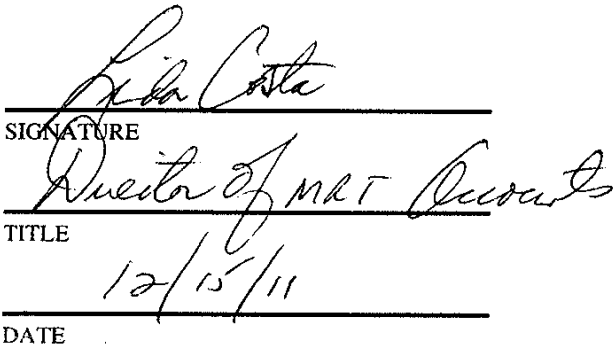 Lida Costa
SIGNATURE
Director of MRT Accounts
TITLE
12/15/11
DATE